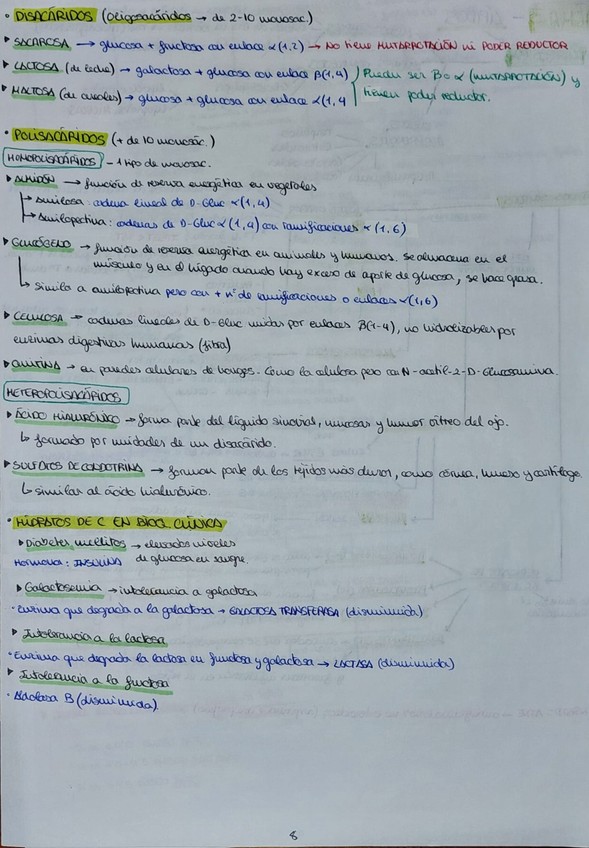 • DISACÁRIDOS (Oligosacáridos → de 2-10 monosac.)
▶ SACAROSA → glucosa + fructosa con enlace α(1,2) → No tiene MUTARROTACIÓN ni PODER REDUCTOR
▶ LACTOSA (de leche) → galactosa + glucosa con enlace β(1,4) Pueden ser β o α (MUTARROTACIÓN) y
▶ MALTOSA (de cereales) → glucosa + glucosa con enlace α(1,4 tienen poder reductor.
• POLISACÁRIDOS (+ de 10 monosac.)
HOMOPOLISACÁRIDOS - 1 tipo de monosac.
▶ ALMIDÓN → función de reserva energética en vegetales
→ Amilosa: cadena lineal de D-Gluc α(1,4)
→ Amilopectina: cadenas de D-Gluc α(1,4) con ramificaciones α(1,6)
▶ GLUCÓGENO → función de reserva energética en animales y humanos. Se almacena en el
músculo y en el hígado cuando hay exceso de aporte de glucosa, se hace grasa.
→ Similar a amilopectina pero con + nº de ramificaciones o enlaces α(1,6)
▶ CELULOSA → cadenas lineales de D-Gluc unidas por enlaces β(1-4), no hidrolizables por
enzimas digestivas humanas (fibra)
▶ QUITINA → en paredes celulares de hongos. Como la celulosa pero con N-acetil-2-D-Glucosamina.
HETEROPOLISACÁRIDOS
▶ ÁCIDO HIALURÓNICO → forma parte del líquido sinovial, mucosas y humor vítreo del ojo.
↳ formado por unidades de un disacárido.
▶ SULFATOS DE CONDOTRINA → forman parte de los tejidos más duros, como córnea, hueso y cartílago.
↳ similar al ácido hialurónico.
• HIDRATOS DE C EN BIOQ. CLÍNICA
▶ Diabetes mellitos → elevados niveles
Hormona: INSULINA de glucosa en sangre.
▶ Galactosemia → intolerancia a galactosa
· Enzima que degrada a la galactosa → GALACTOSA TRANSFERASA (disminuida)
▶ Intolerancia a la lactosa
· Enzima que degrada la lactosa en fructosa y galactosa → LACTASA (disminuida)
▶ Intolerancia a la fructosa
· Aldolasa B (disminuida).
8